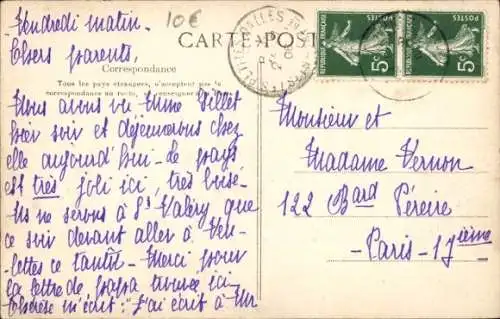 Vendredi matin.
10€
Chers parents,
CARTE POST
Correspondance
Tous les pays étrangers n'acceptent pas la
correspondance au recto, 
Nous avons vu Mme Billet
hier soir et déjeunerons chez
elle aujourd'hui - Le pays
est très joli ici, très boisé -
Ns ne serons à St Valéry que
ce soir devant aller à Veu-
lettes ce tantôt - Merci pour
la lettre de papa trouvée ici -
m'écrit : "J'ai écrit à Mr
RÉPUBLIQUE FRANÇAISE
POSTES
5c
RÉPUBLIQUE FRANÇAISE
POSTES
5c
Monsieur et
Madame Vernon
122 Bard Péreire
- Paris - 17ième